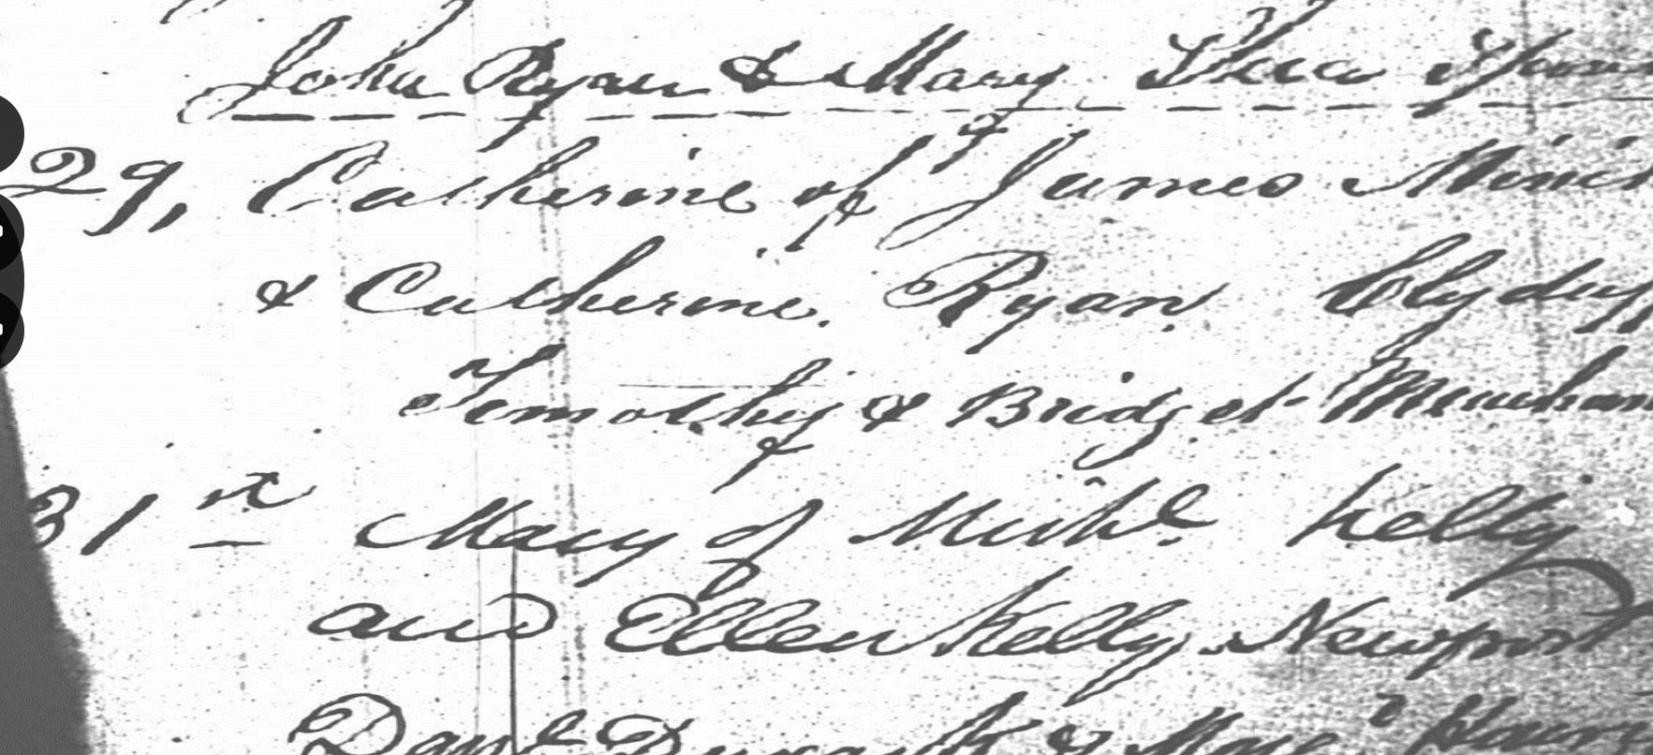 John Ryan & Mary Shea
29, Catherine of James
& Catherine Ryan
Timothy & Bridget
31st Mary of Michl. Kelly
and Ellen Kelly Newport
Danl &